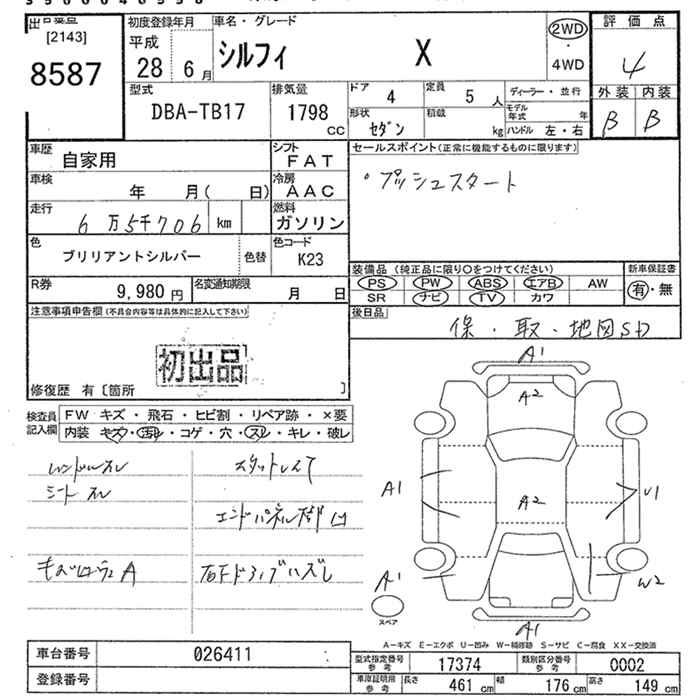 出品番号 初度登録年月 車名・グレード 評価点
[2143] 平成 シルフィ X 2WD
8587 28 6月 ・ 4
4WD
型式 排気量 ドア 4 定員 5 人 ディーラー・並行 外装 内装
DBA-TB17 1798 cc 形状 セダン 積載 kg モデル年式 年 B B
ハンドル 左・右
車歴 自家用 シフト FAT セールスポイント(正常に機能するものに限ります)
車検 年 月( 日) 冷房 AAC ・プッシュスタート
走行 6万5千706 km 燃料 ガソリン
色 ブリリアントシルバー 色替 色コード K23
装備品 (純正品に限り○をつけてください) 新車保証書
R券 9,980円 名変通知期限 月 日 PS PW ABS エアB AW 有・無
SR ナビ TV カワ
注意事項申告欄(不具合内容等は具体的に記入して下さい) 後日品 保・取・地図SD
初出品
修復歴 有〔箇所 〕
検査員記入欄 FW キズ・飛石・ヒビ割・リペア跡・×要
内装 キズ・汚れ・コゲ・穴・スレ・キレ・破レ
ハンドルスレ スタットレスT
シート スレ
エンドパネル下部凹
右Fドアノブハズレ
A1
A2
A1 A2 U1
A1 W2
スペア
A1
A－キズ E－エクボ U－凹み W－補修跡 S－サビ C－腐食 XX－交換済
車台番号 026411 型式指定番号参考 17374 類別区分番号参考 0002
登録番号 車庫証明用参考 長さ 461 cm 幅 176 cm 高さ 149 cm